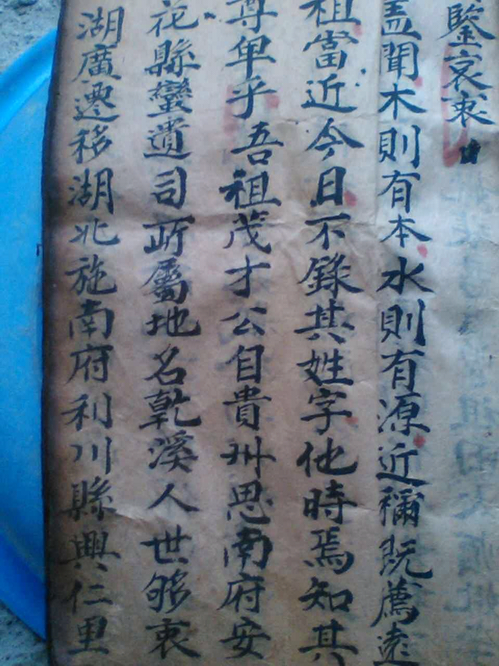 鑒哀衷
盖聞木則有本水則有源近禰既薦遠
祖當近今日不錄其姓字他時焉知其
尊卑乎吾祖茂才公自貴州思南府安
花縣蠻遺司所屬地名乾溪人世够衷
湖廣遷移湖北施南府利川縣興仁里